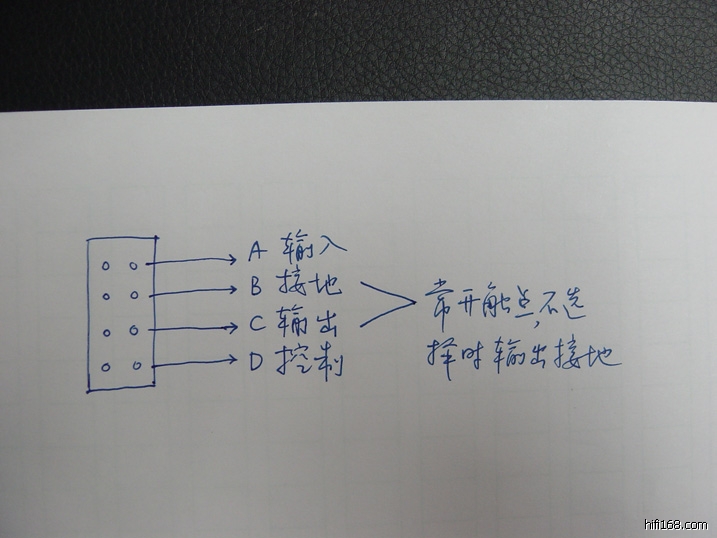 A 输入
B 接地
C 输出
D 控制
常开触点,不选
择时输出接地
hifi168.com